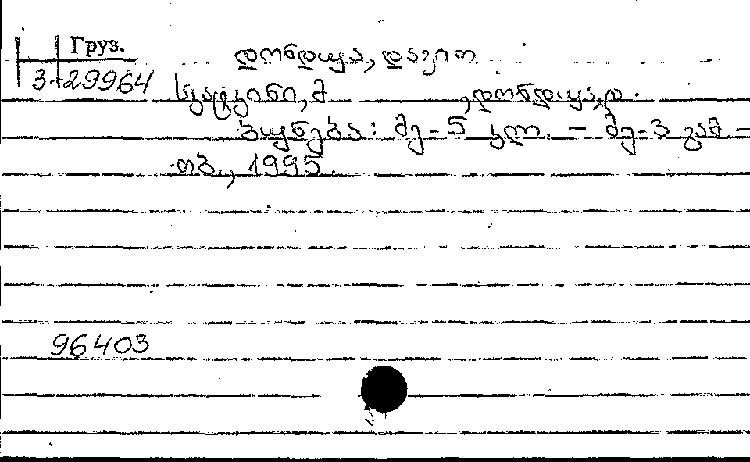 Груз.
3-29964
დონდუა, დავით
სვატკინი, მ , დონდუა, დ.
ბუნება: მე-5 კლ. - მე-3 გამ -
თბ., 1995.
96403